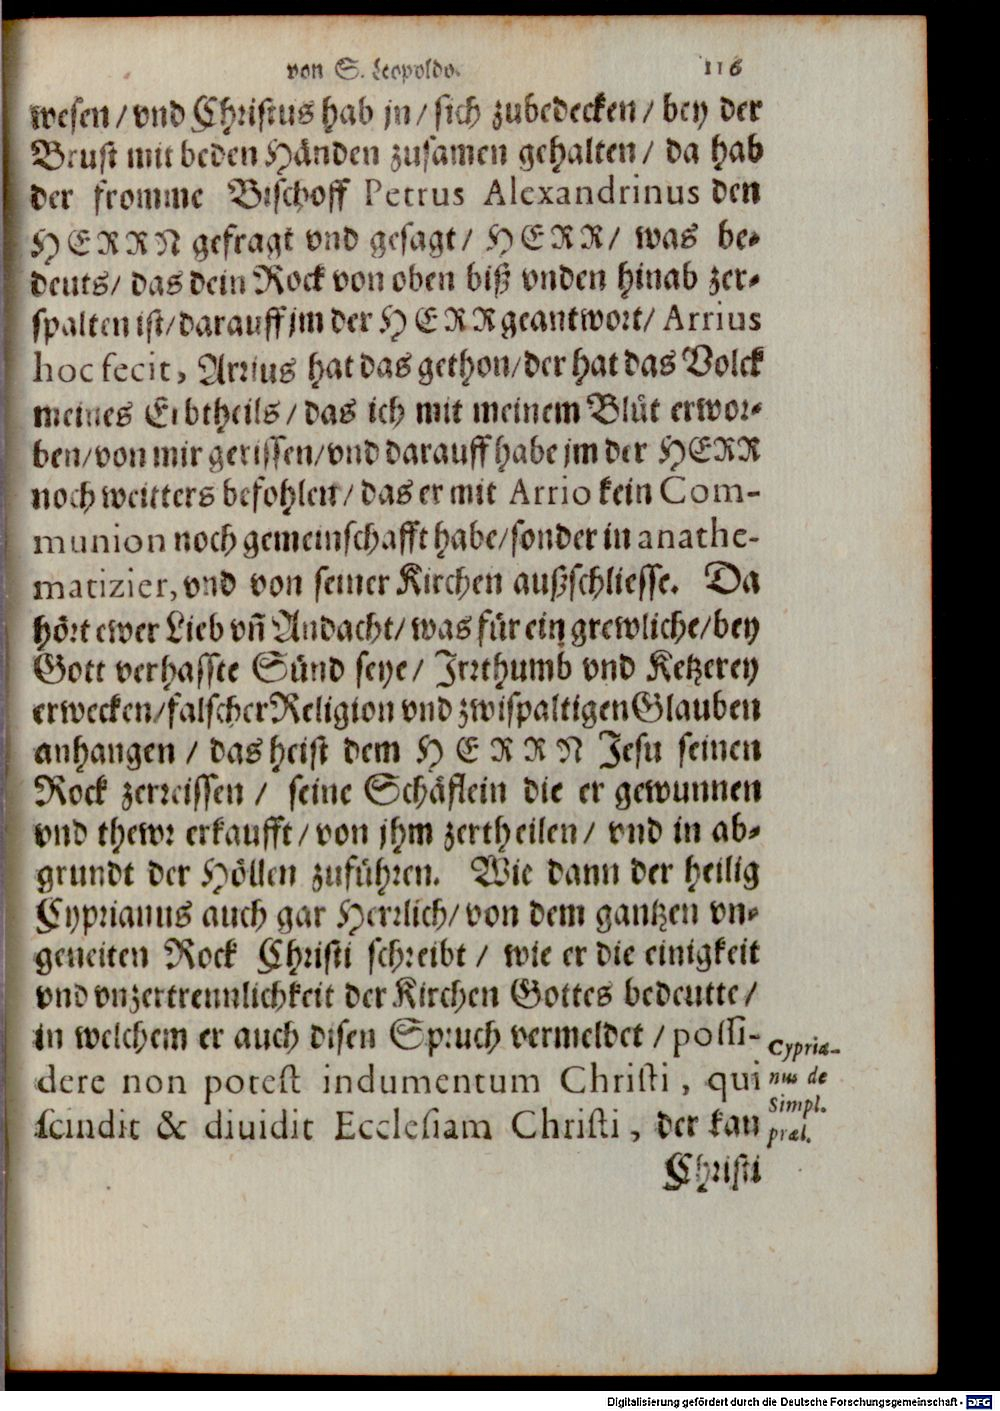 von S. Leopoldo. 116
wesen / vnd Christus hab jn / sich zubedecken / bey der
Brust mit beden Händen zusamen gehalten / da hab
der fromme Bischoff Petrus Alexandrinus den
HERRN gefragt vnd gesagt / HERR / was be-
deuts / das dein Rock von oben biß vnden hinab zer-
spalten ist / darauff jm der HERR geantwort / Arrius
hoc fecit, Arrius hat das gethon / der hat das Volck
meines Erbtheils / das ich mit meinem Blůt erwor-
ben / von mir gerissen / vnd darauff habe jm der HERR
noch weitters befohlen / das er mit Arrio kein Com-
munion noch gemeinschafft habe / sonder in anathe-
matizier, vnd von seiner Kirchen außschliesse. Da
hört ewer Lieb vñ Andacht / was für ein grewliche / bey
Gott verhasste Sünd seye / Jrrthumb vnd Ketzerey
erwecken / falscher Religion vnd zwispaltigen Glauben
anhangen / das heist dem HERRN Jesu seinen
Rock zerreissen / seine Schäflein die er gewunnen
vnd thewr erkaufft / von jhm zertheilen / vnd in ab-
grundt der Höllen zuführen. Wie dann der heilig
Cyprianus auch gar Herrlich / von dem gantzen vn-
geneiten Rock Christi schreibt / wie er die einigkeit
vnd vnzertrennlichkeit der Kirchen Gottes bedeutte /
in welchem er auch disen Spruch vermeldet / possi-
dere non potest indumentum Christi, qui
scindit & diuidit Ecclesiam Christi, der kan
Cypria-
nus de
Simpl.
præl.
Christi
Digitalisierung gefördert durch die Deutsche Forschungsgemeinschaft - DFG